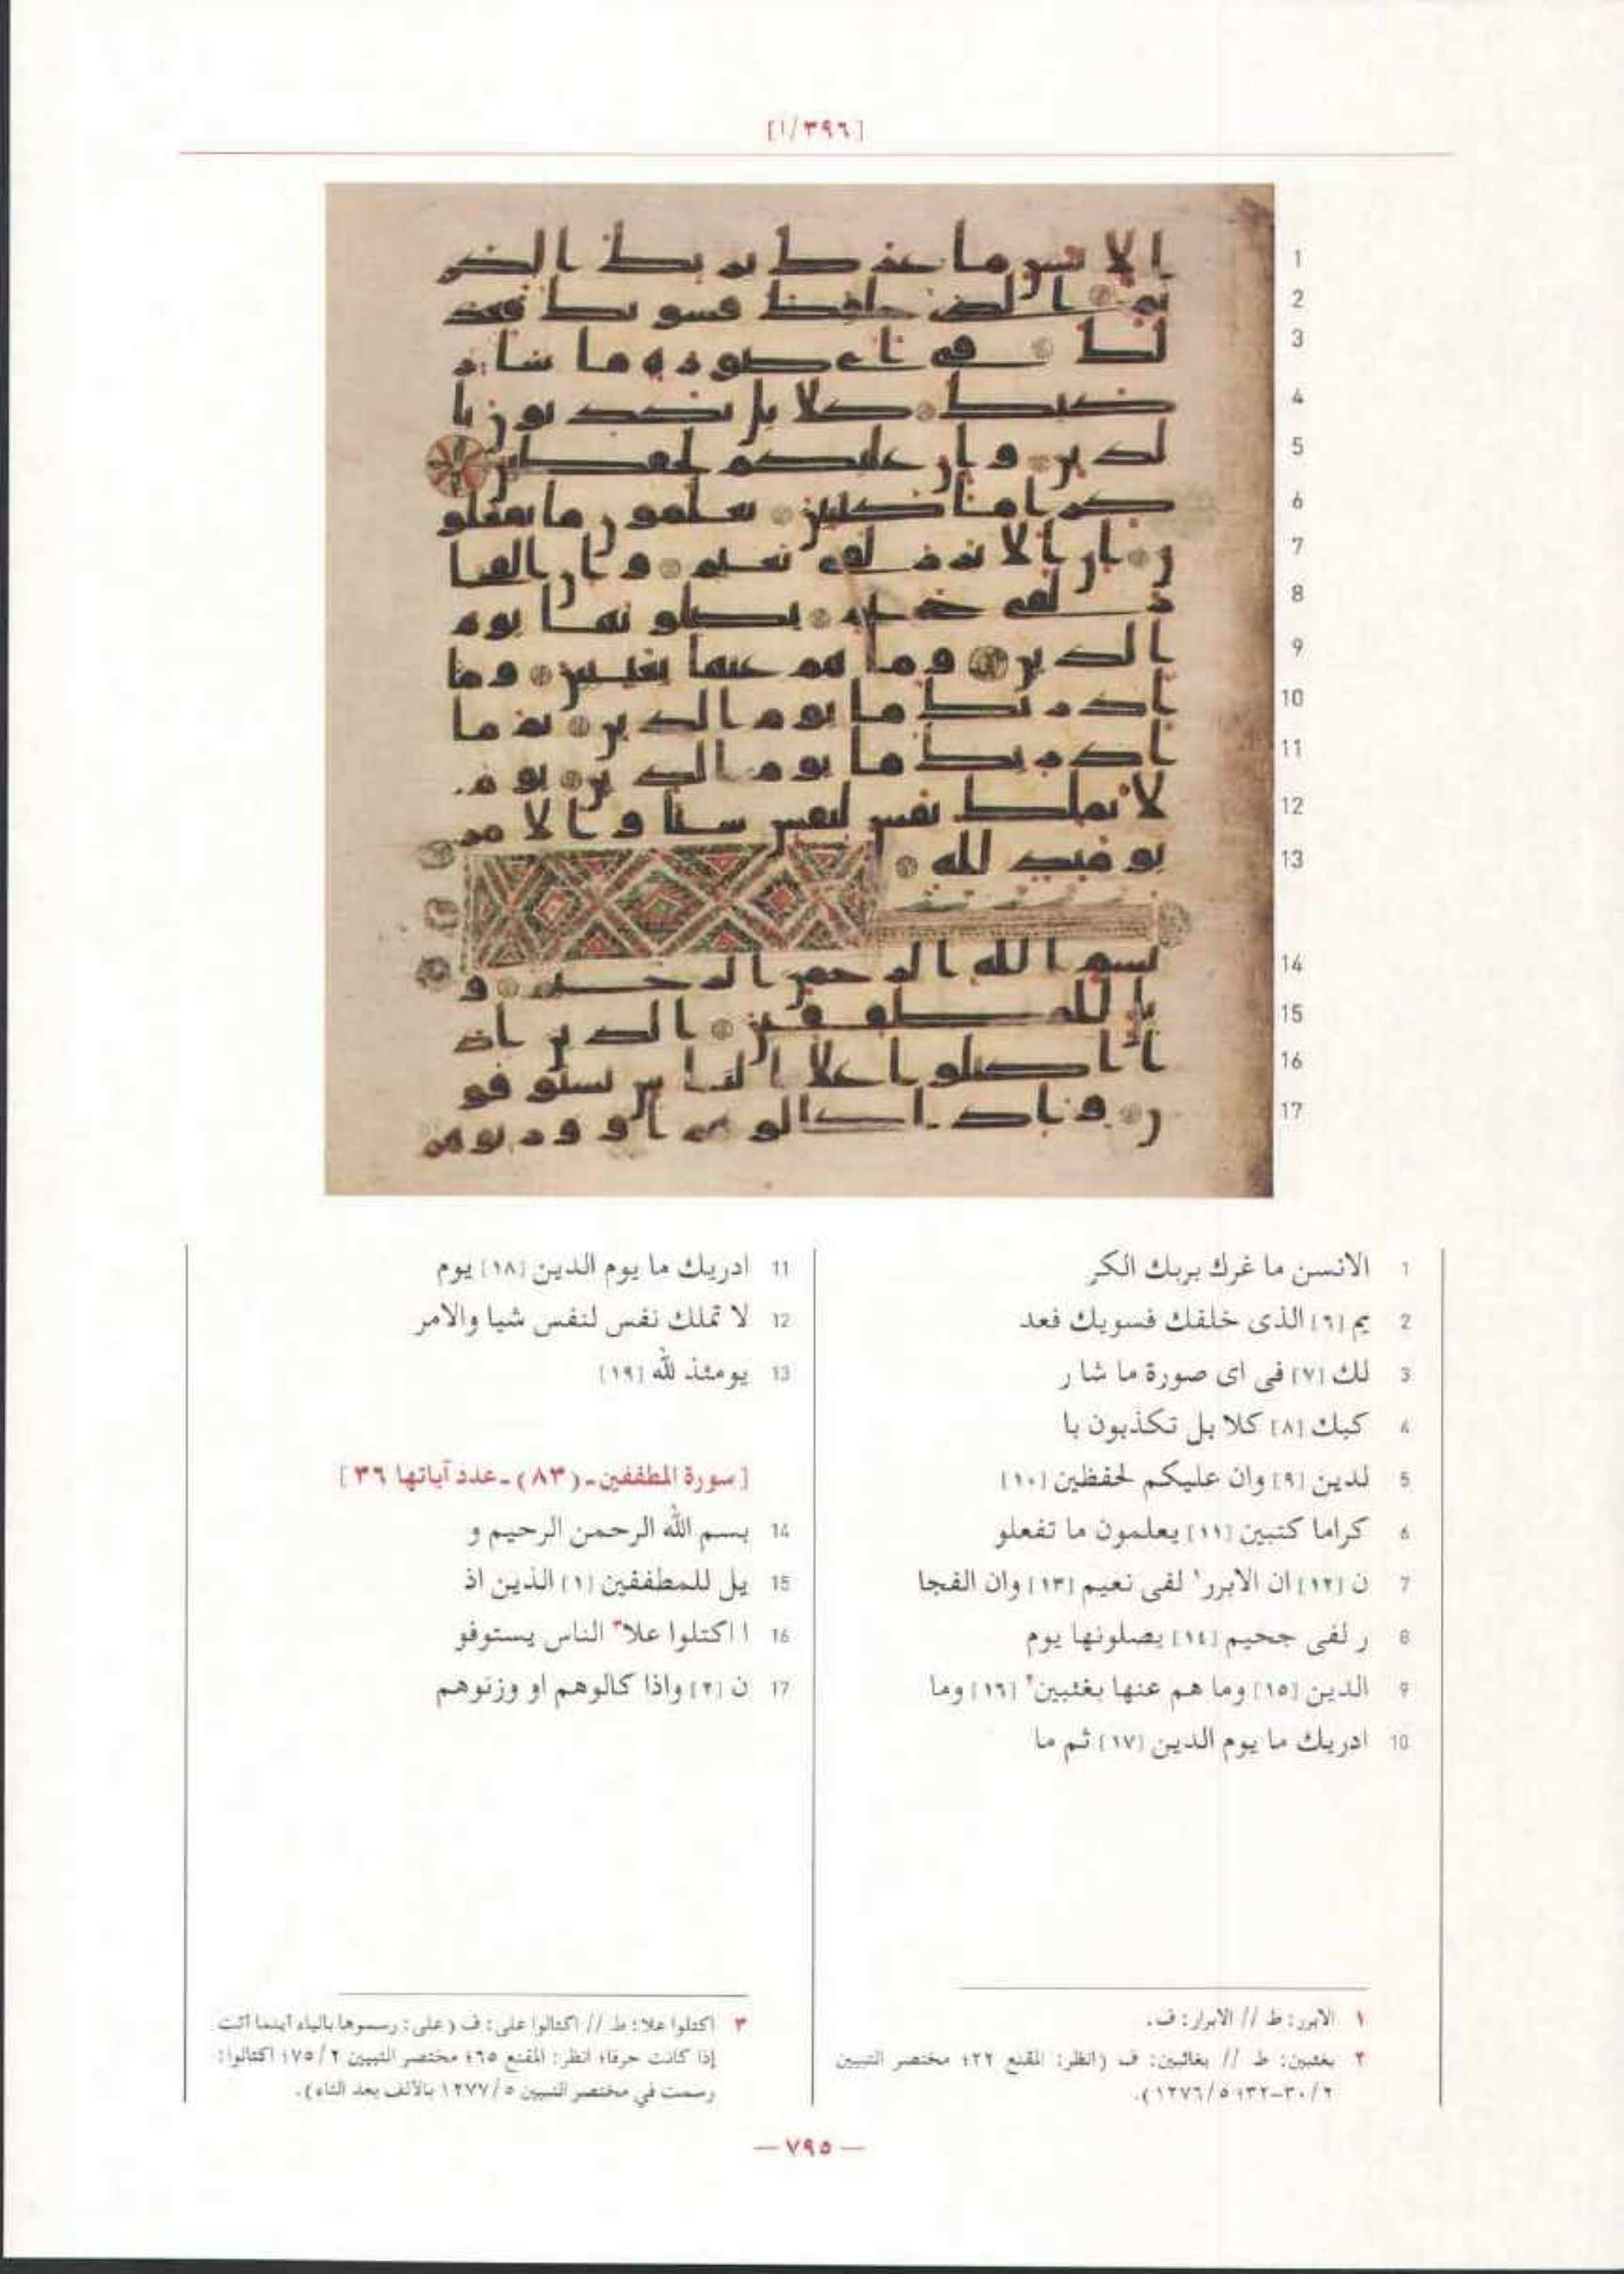 [٣٩٦/ا]
1 الانسن ما غرك بربك الكر
2 يم [٦] الذى خلقك فسويك فعد
3 لك [٧] فى اى صورة ما شا ر
4 كبك [٨] كلا بل تكذبون با
5 لدين [٩] وان عليكم لحفظين [١٠]
6 كراما كتبين [١١] يعلمون ما تفعلو
7 ن [١٢] ان الابرر١ لفى نعيم [١٣] وان الفجا
8 ر لفى جحيم [١٤] يصلونها يوم
9 الدين [١٥] وما هم عنها بغئبين٢ [١٦] وما
10 ادريك ما يوم الدين [١٧] ثم ما
11 ادريك ما يوم الدين [١٨] يوم
12 لا تملك نفس لنفس شيا والامر
13 يومئذ لله [١٩]
[سورة المطففين ـ (٨٣) ـ عدد آياتها ٣٦]
14 بسم الله الرحمن الرحيم و
15 يل للمطففين [١] الذين اذ
16 ا اكتلوا علا٣ الناس يستوفو
17 ن [٢] واذا كالوهم او وزنوهم
١ الابرر: ط // الابرار: ف.
٢ بغئبين: ط // بغائبين: ف (انظر: المقنع ٢٢؛ مختصر التبيين
٢/٣٠-٣٢؛ ٥/١٢٧٦).
٣ اكتلوا علا: ط // اكتالوا على: ف (على: رسموها بالياء أينما أتت
إذا كانت حرفا؛ انظر: المقنع ٦٥؛ مختصر التبيين ٢/٧٥؛ اكتالوا:
رسمت في مختصر التبيين ٥/١٢٧٧ بالألف بعد التاء).
— ٧٩٥ —